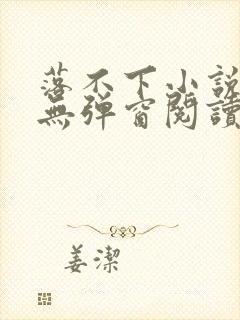 落不下小說
無彈窗閱讀
姜潔